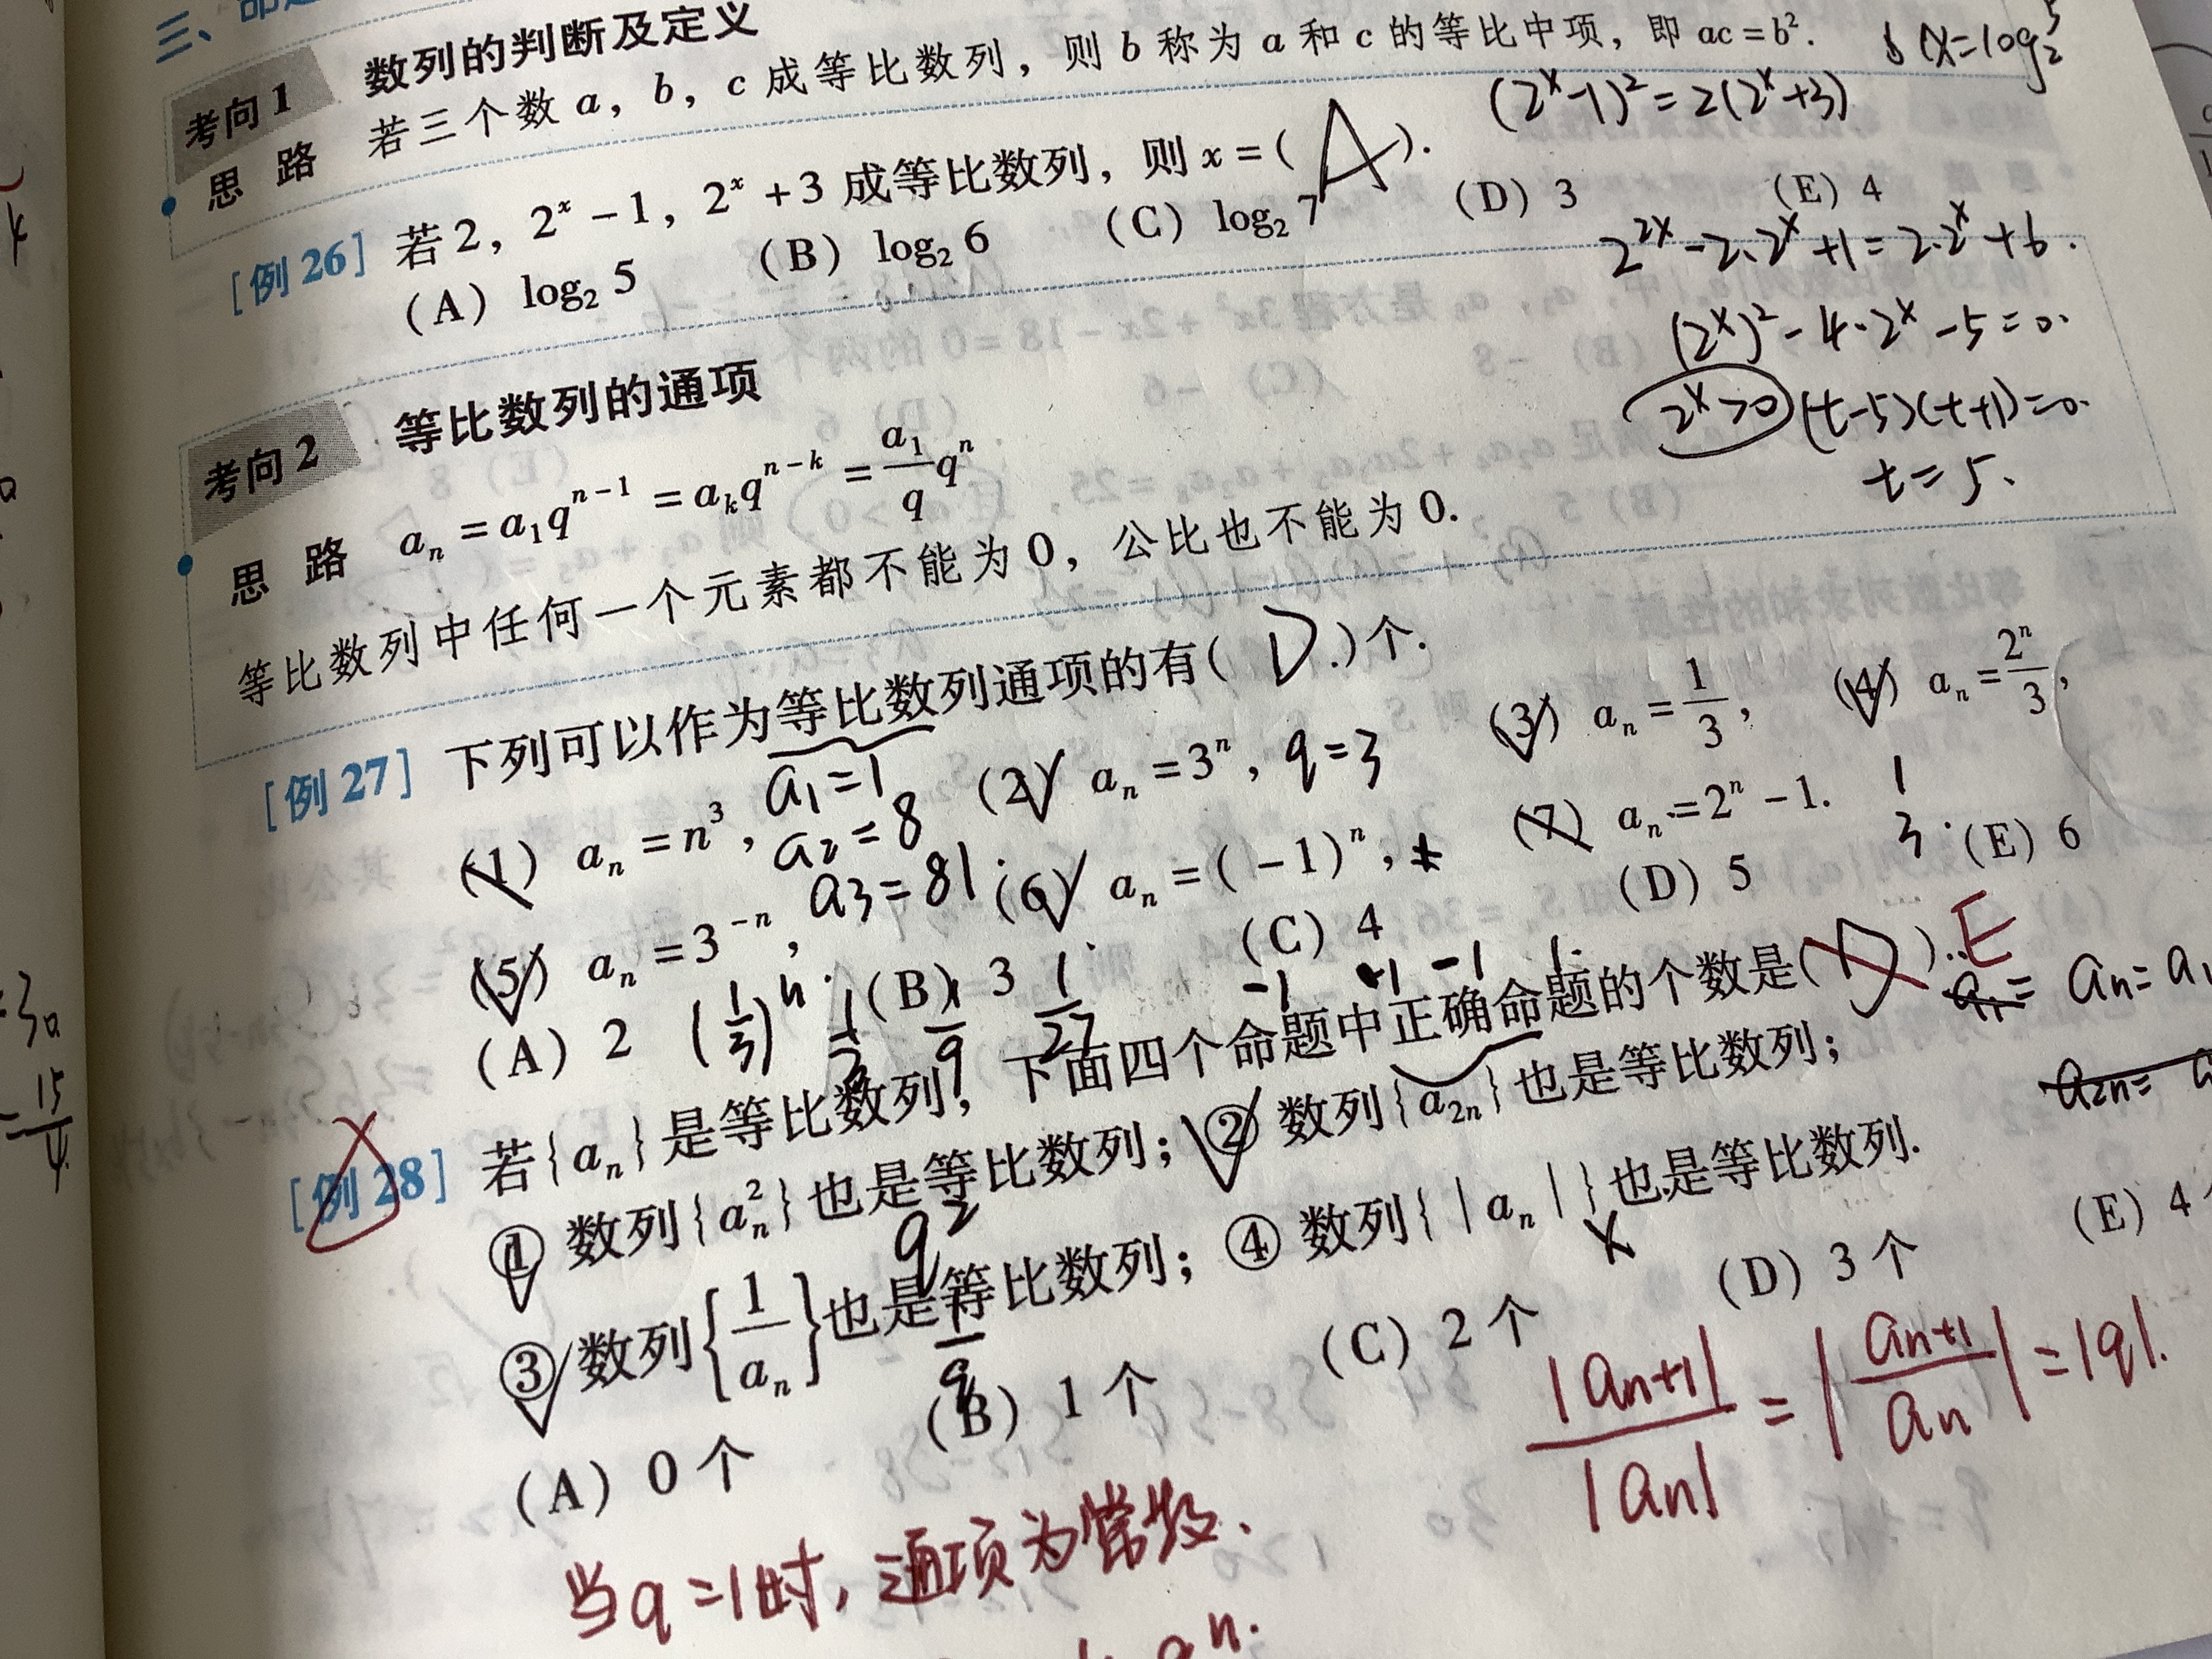 数列的判断及定义
考向1
思 路 若三个数a，b，c成等比数列，则b称为a和c的等比中项，即ac=b².
(2ˣ-1)²=2(2ˣ+3)
[例26] 若2，2ˣ-1，2ˣ+3成等比数列，则x=( A ).
(A) log₂5 (B) log₂6 (C) log₂7 (D) 3 (E) 4
2²ˣ-2·2ˣ+1=2·2ˣ+6.
(2ˣ)²-4·2ˣ-5=0.
2ˣ>0 (t-5)(t+1)=0.
t=5.
考向2 等比数列的通项
思 路 aₙ=a₁qⁿ⁻¹=aₖqⁿ⁻ᵏ=a₁/q qⁿ.
等比数列中任何一个元素都不能为0，公比也不能为0.
[例27] 下列可以作为等比数列通项的有( D.)个.
a₁=1
(1) aₙ=n³， (2) aₙ=3ⁿ，q=3 (3) aₙ=1/3， (4) aₙ=2ⁿ/3，
a₂=8
a₃=81
(5) aₙ=3⁻ⁿ， (6) aₙ=(-1)ⁿ， (7) aₙ=2ⁿ-1.
(1/3)ⁿ. 1/3 1/9 1/27 -1 1 -1 1. 1 3.
(A) 2 (B) 3 (C) 4 (D) 5 (E) 6
[例28] 若{aₙ}是等比数列，下面四个命题中正确命题的个数是( D ). E
① 数列{aₙ²}也是等比数列；② 数列{a₂ₙ}也是等比数列；
q²
③ 数列{1/aₙ}也是等比数列；④ 数列{|aₙ|}也是等比数列.
(A) 0个 (B) 1个 (C) 2个 (D) 3个 (E) 4
|aₙ₊₁|/|aₙ|=|aₙ₊₁/aₙ|=|q|.
当q=1时，通项为常数.